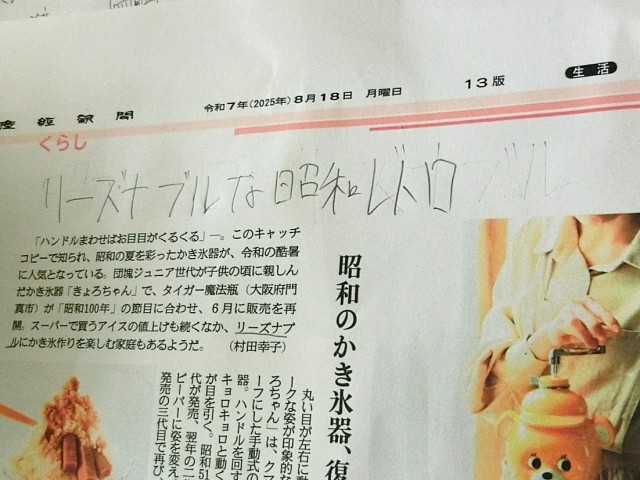 産経新聞
令和7年(2025年)8月18日 月曜日
13版
生活
くらし
リーズナブルな昭和レトロ
「ハンドルまわせばお目目がくるくる」―。このキャッチ
コピーで知られ、昭和の夏を彩ったかき氷器が、令和の酷暑
に人気となっている。団塊ジュニア世代が子供の頃に親しん
だかき氷器「きょろちゃん」で、タイガー魔法瓶（大阪府門
真市）が「昭和100年」の節目に合わせ、6月に販売を再
開。スーパーで買うアイスの値上げも続くなか、リーズナブ
ルにかき氷作りを楽しむ家庭もあるようだ。　（村田幸子）
昭和のかき氷器、復
丸い目が左右に動
ークな姿が印象的な
ろちゃん」は、クマ
ーフにした手動式の
器。ハンドルを回す
キョロキョロと動く
が目を引く。昭和51
代が発売、翌年の二
ビーバーに姿を変え
発売の三代目で再び、